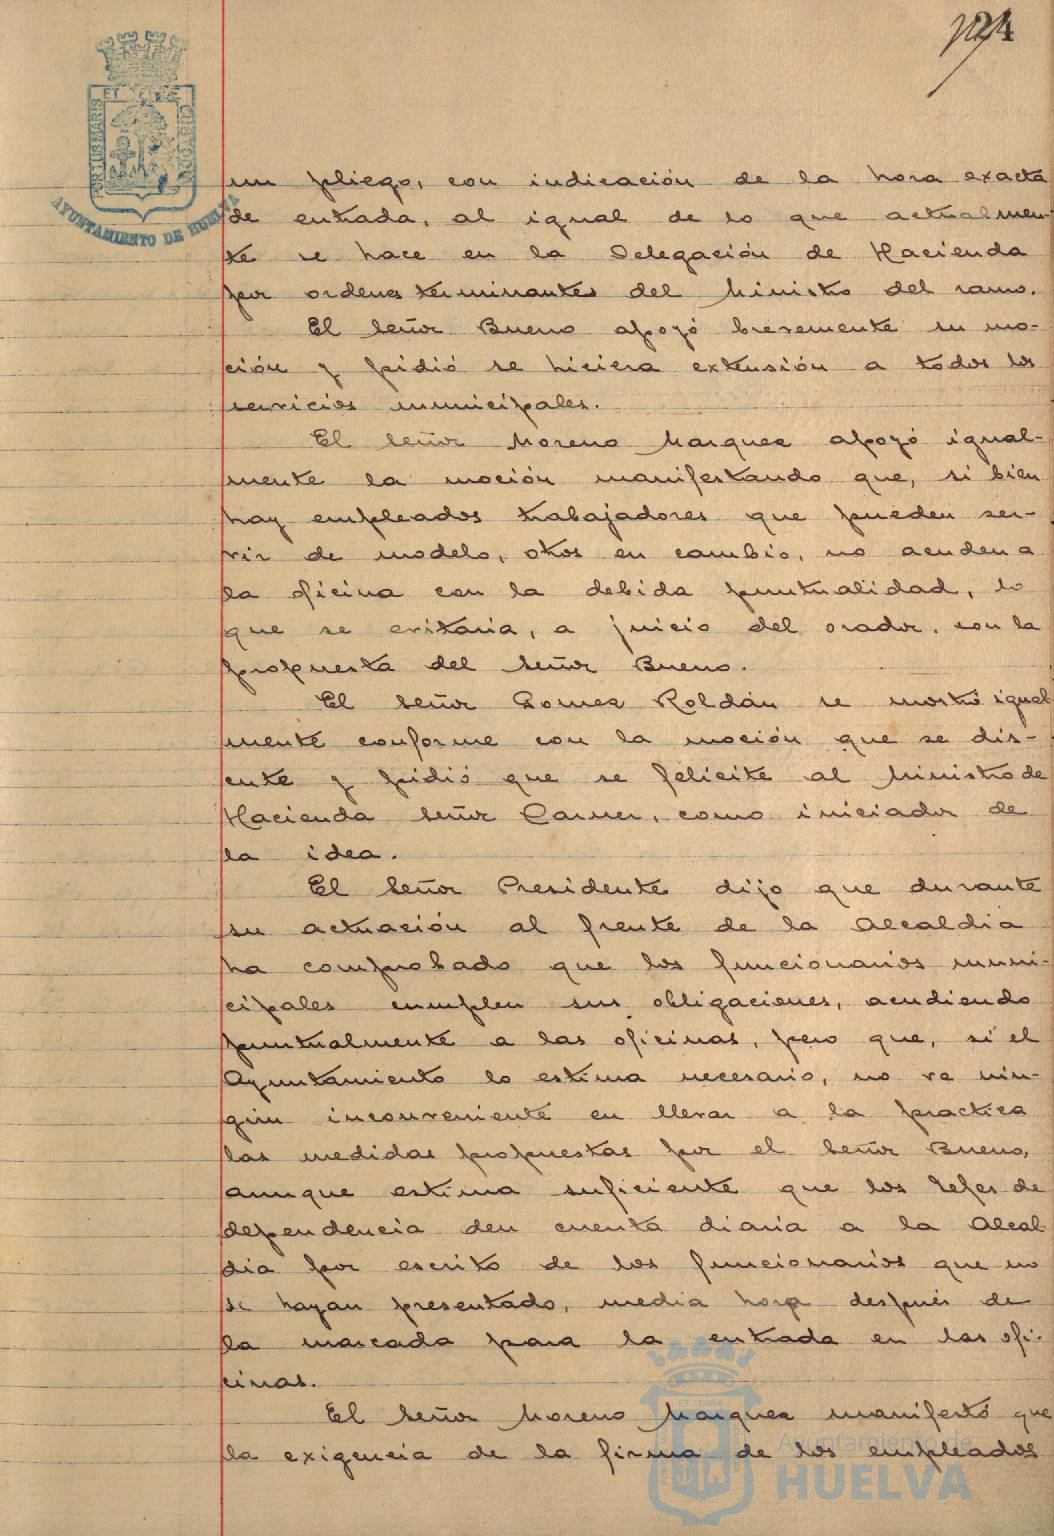 124
PORTUS MARIS ET TERRÆ CUSTODIA
AYUNTAMIENTO DE HUELVA
un pliego, con indicación de la hora exacta
de entrada, al igual de lo que actualmen-
te se hace en la Delegación de Hacienda
por ordenes terminantes del Ministro del ramo.
El Señor Bueno apoyó brevemente su mo-
ción y pidió se hiciera extensión a todos los
servicios municipales.
El Señor Moreno Marquez apoyó igual-
mente la moción manifestando que, si bien
hay empleados trabajadores que pueden ser-
vir de modelo, otros en cambio, no acuden a
la oficina con la debida puntualidad, lo
que se evitaria, a juicio del orador, con la
propuesta del Señor Bueno.
El Señor Gomez Roldán se mostró igual
mente conforme con la moción que se dis-
cute y pidió que se felicite al Ministro de
Hacienda Señor Carner, como iniciador de
la idea.
El Señor Presidente dijo que durante
su actuación al frente de la Alcaldia
ha comprobado que los funcionarios muni-
cipales cumplen sus obligaciones, acudiendo
puntualmente a las oficinas, pero que, si el
Ayuntamiento lo estima necesario, no ve nin-
gún inconveniente en llevar a la practica
las medidas propuestas por el Señor Bueno,
aunque estima suficiente que los Jefes de
dependencia den cuenta diaria a la Alcal
dia por escrito de los funcionarios que no
se hayan presentado, media hora después de
la marcada para la entrada en las ofi-
cinas.
El Señor Moreno Marquez manifestó que
la exigencia de la firma de los empleados
Ayuntamiento de
HUELVA